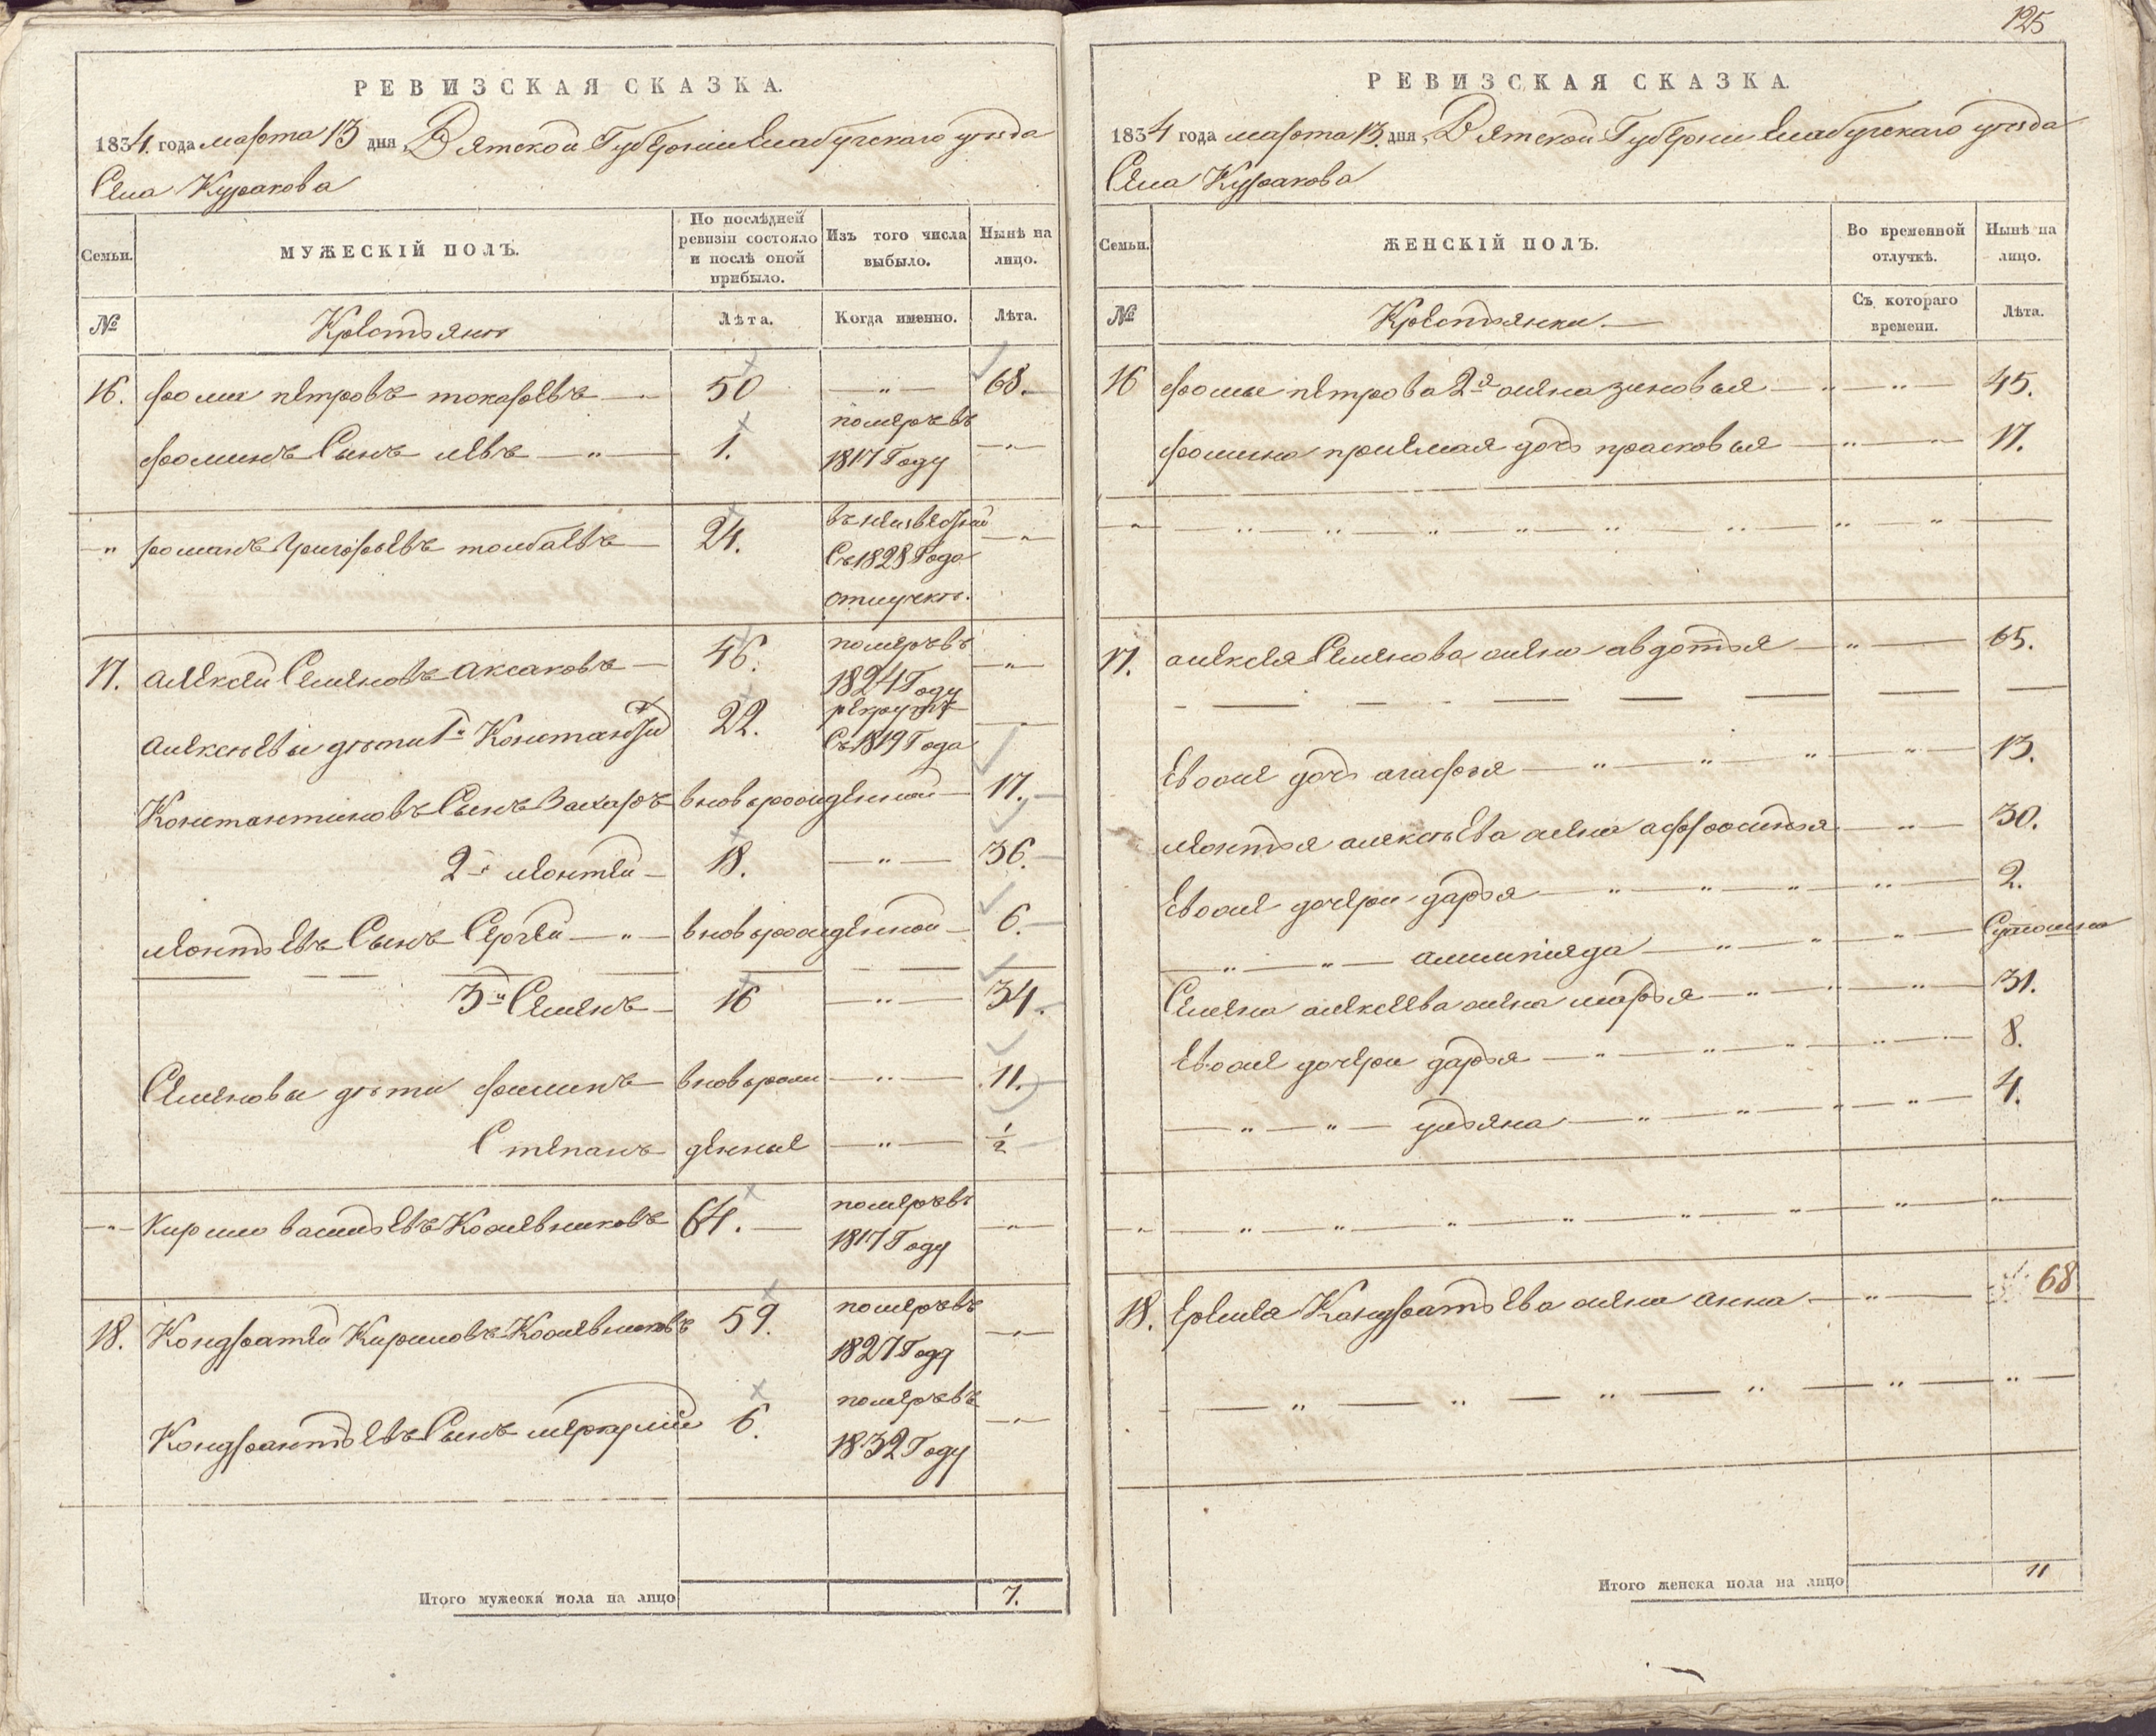 125
РЕВИЗСКАЯ СКАЗКА.
1834 года марта 13 дня, Вятской Губернии Елабугскаго уѣзда
Села Куракова
Семьи.
МУЖЕСКІЙ ПОЛЪ.
По послѣдней ревизіи состояло и послѣ оной прибыло.
Изъ того числа выбыло.
Нынѣ на лицо.
№
Крестьяне
Лѣта.
Когда именно.
Лѣта.
16. фома петровъ токаревъ — 50 — „ — 68.
фоминъ Сынъ левъ — „ — 1. померъ въ 1817 Году — „
— „ романъ григорьевъ толбаевъ — 24. въ неизвестной Съ 1828 Года отлучке. — „ —
17. алексей Семеновъ аксаковъ — 46. померъ въ 1824 Году — „ —
алексѣевы дѣти 1й Константи 22. рекрут Съ 1819 Года — „ —
Константиновъ Сынъ Захаръ вновьрожденной — 17. —
2й леонтей — 18. — „ — 36. —
леонтьевъ Сынъ Сергей — „ — вновьрожденной — 6. —
3й Семенъ — 16 — „ — 34.
Семеновы дѣти филипъ — вновьрож — „ — 11. —
Степанъ денные — „ — 1/2
— „ — кирило васильевъ Кожевниковъ 64. — померъ въ 1817 Году — „
18. Кондратей Кириловъ Кожевниковъ 59. померъ въ 1827 Году — „ —
Кондрантьевъ Сынъ меркулій 6. померъ въ 1832 Году — „ —
Итого мужеска пола на лицо 7.
РЕВИЗСКАЯ СКАЗКА.
1834 года марта 13. дня, Вятской Губерніи Елабугскаго уѣзда
Села Куракова
Семьи.
ЖЕНСКІЙ ПОЛЪ.
Во временной отлучкѣ.
Нынѣ на лицо.
№
Крестьянки. —
Съ котораго времени.
Лѣта.
16 фомы петрова 2я жена зиновья — „ — „ — 45.
фомина приемая дочь прасковья — „ — „ — 17.
— „ — „ „ „ „ „ „ — „ „ —
17. алексея Семенова жена авдотья — „ — 65.
Евоже дочь агафья — „ — „ „ — „ — 13.
леонтья алексѣева жена аффросинья — „ — 30.
Евоже дочери дарья — „ — „ — „ — „ — 2.
— „ — „ — алимпияда — „ — „ — „ —
Семена алексеева жена марья — „ — „ — „ — 31.
Евоже дочери дарья — „ — „ — „ — „ — „ 8.
— „ — „ — ульяна — „ — „ — „ — „ — 4.
— „ — „ — „ — „ — „ — „ — „ — „ — „ —
18. Еремея Кондратьева жена анна — „ — 68
— „ — „ — „ — „ — „ — „ —
Итого женска пола на лицо 11